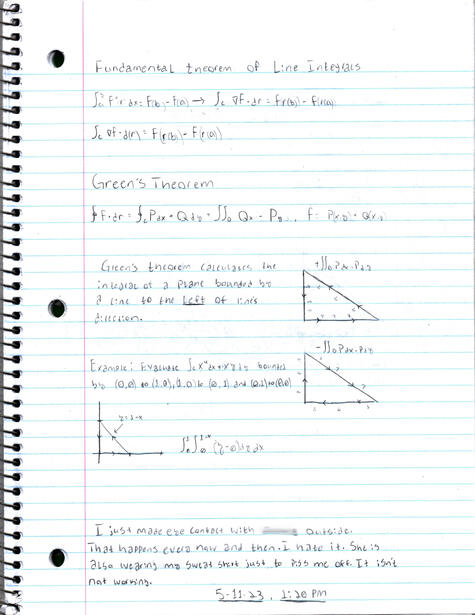 Fundamental theorem of Line Integrals
∫ₐᵇ F'(x) dx = F(b) - F(a) → ∫c ∇F · dr = F(r(b)) - F(r(a))
∫c ∇f · d(r) = F(r(b)) - F(r(a))
Green's Theorem
∮ F · dr = ∮c Pdx + Qdy = ∬D Qx - Py
Green's theorem calculates the
integral of a plane bounded by
a line to the Left of line's
direction.
+∬D Pdx - Pdy
-∬D Pdx - Pdy
Example: Evaluate ∫c x⁴dx + xydy bounded
by (0,0) to (1,0), (1,0) to (0,1) and (0,1) to (0,0)
y=1-x
∫₀¹ ∫₀¹⁻ˣ (y-0)dydx
I just made eye contact with outside.
That happens every now and then. I hate it. She is
also wearing my sweat shirt just to piss me off. It isn't
not working.
5-11-23, 1:20 PM